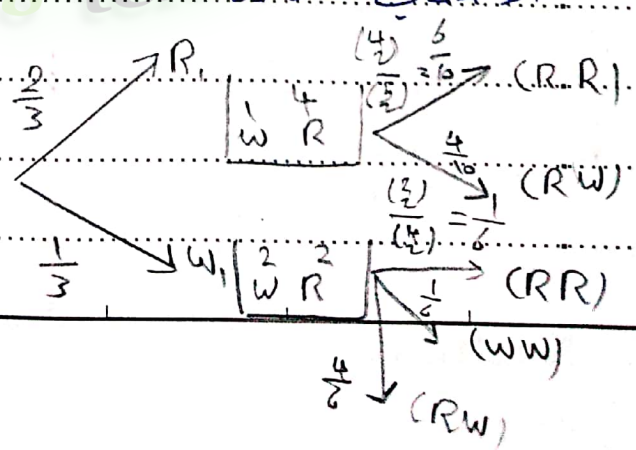 2/3 R₁ 1 W 4 R (4 2)/(5 2) = 6/10 (R R)
4/10 (R W)
1/3 W₁ 2 W 2 R (2 2)/(4 2) = 1/6 (RR)
1/6 (WW)
4/6 (RW)